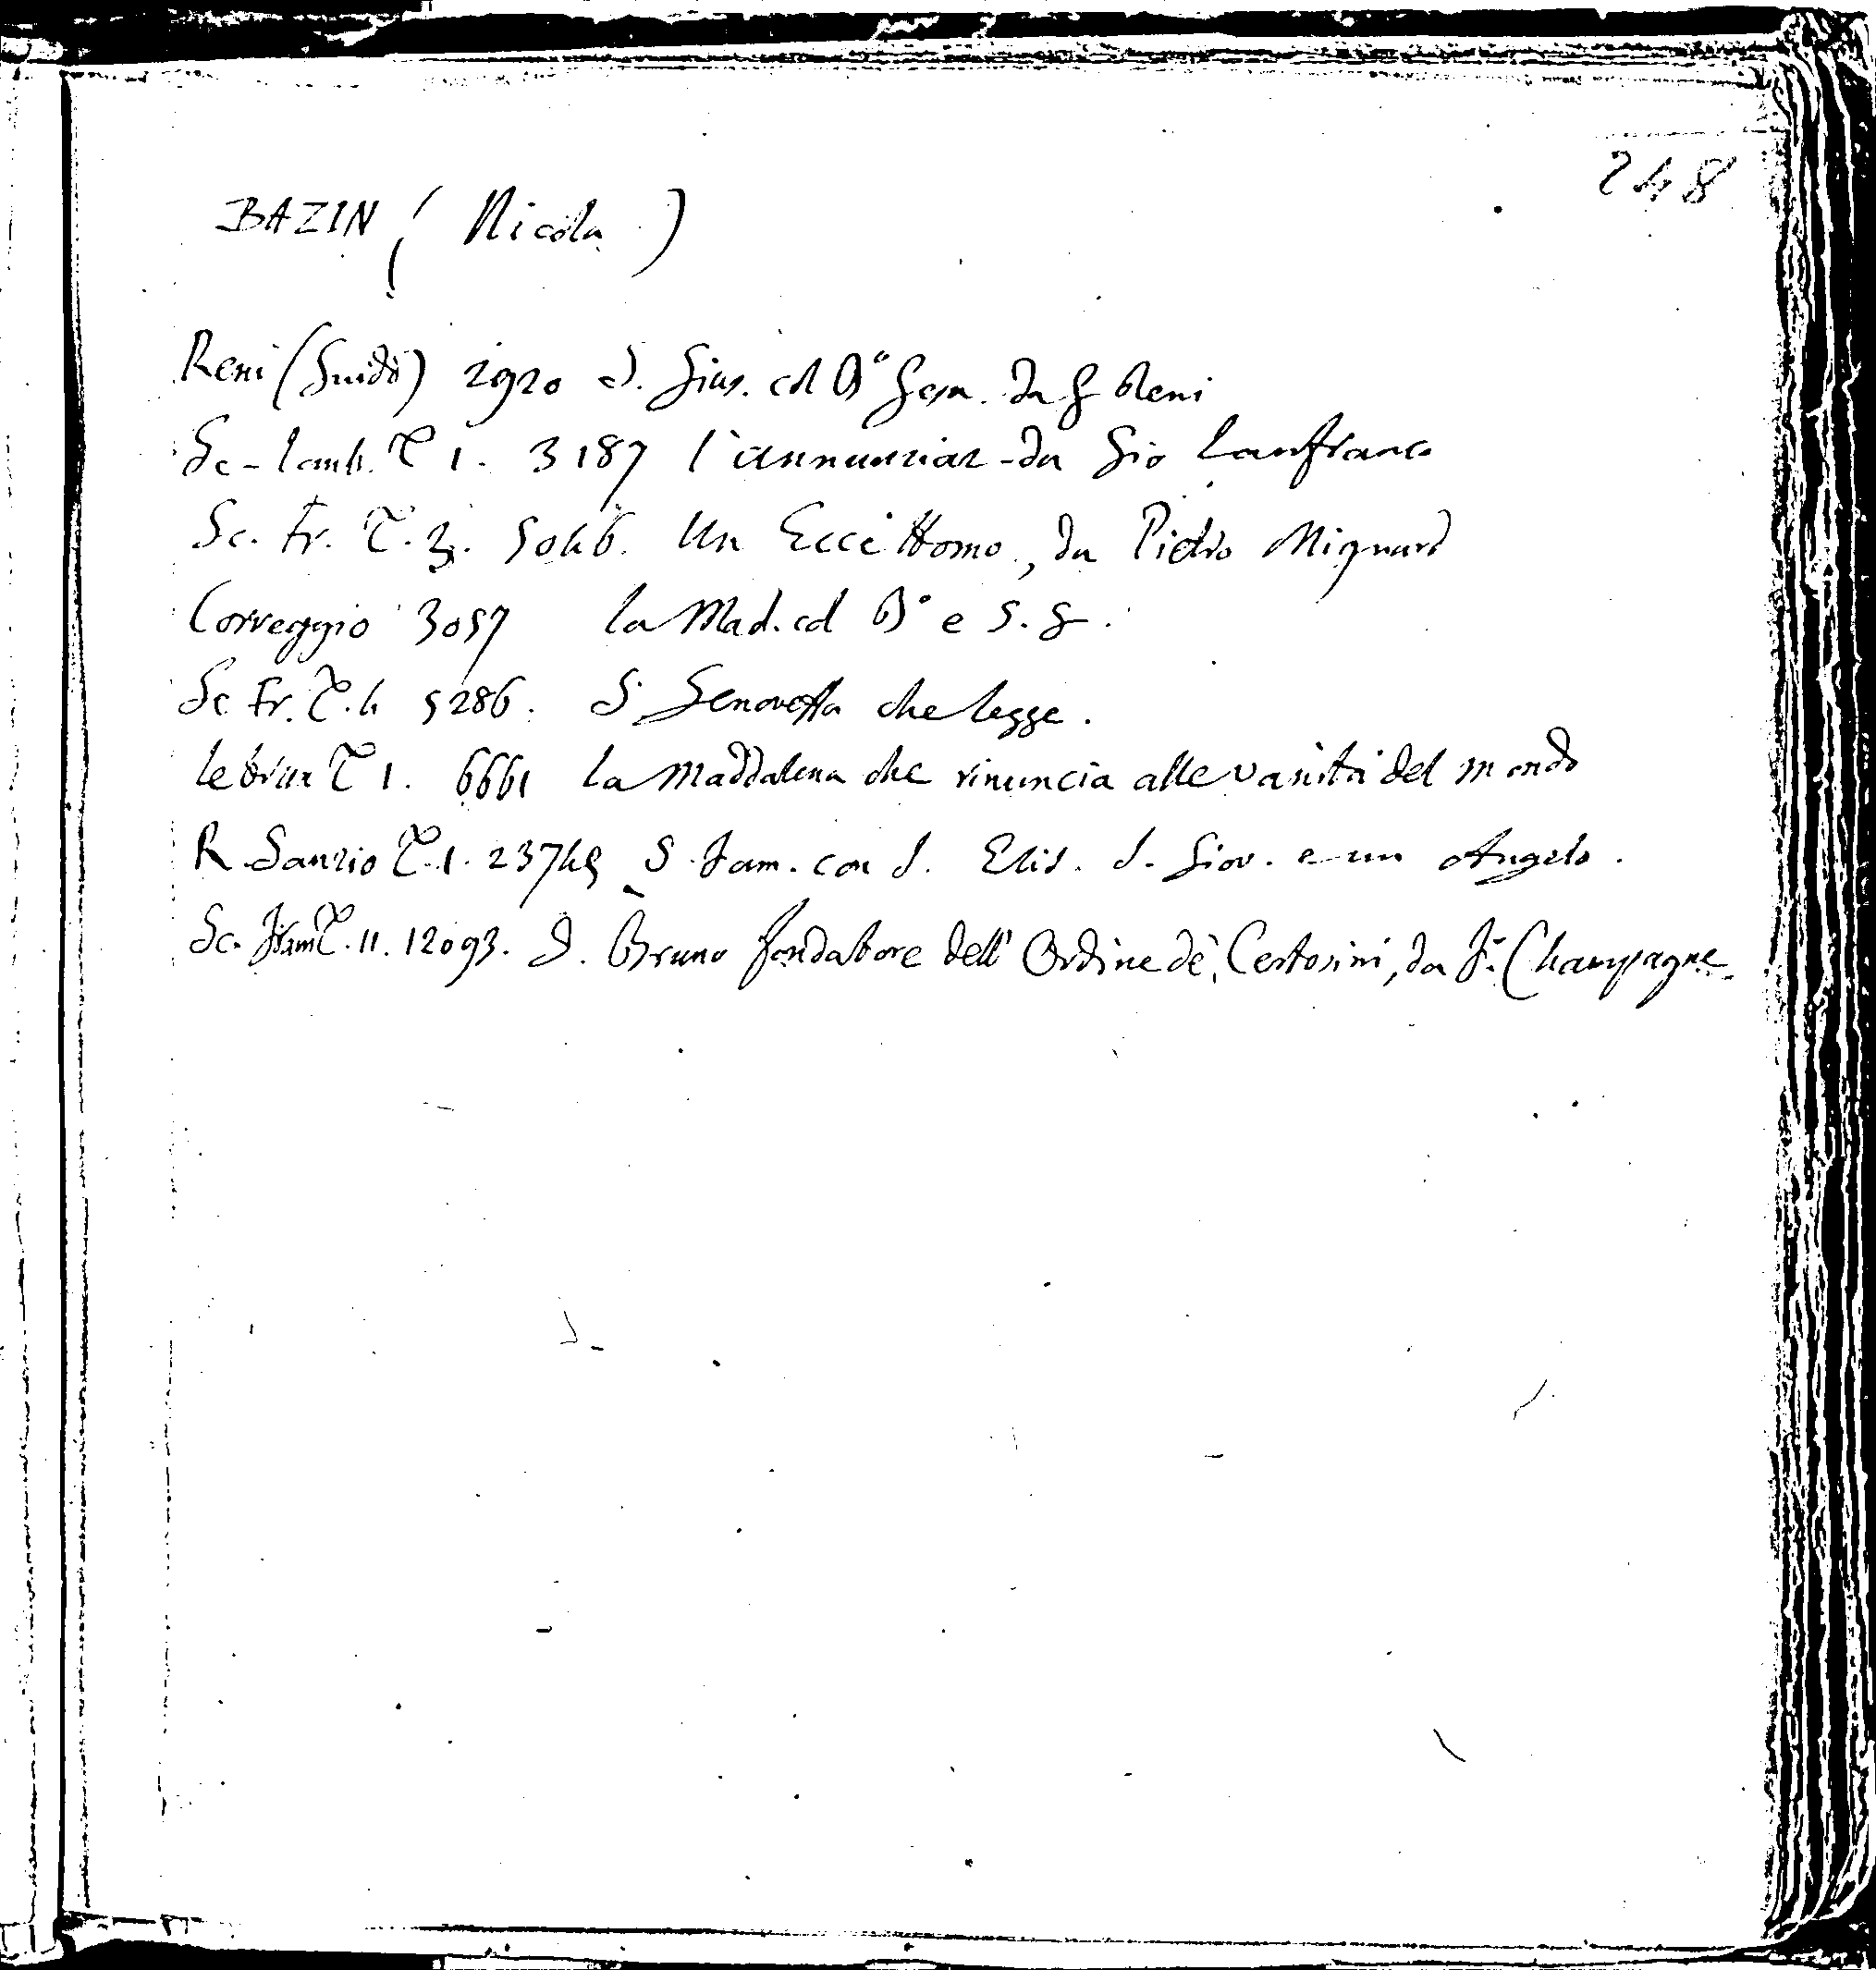 248
BAZIN ( Nicola )
Reni (Guido) 2920 S. Gius. col B.º Gesu. da G Reni
Sc. Lomb. T 1. 3187 l'annunziaz. da Gio Lanfranco
Sc. Fr. T. 3. 5046. Un Ecce Homo, da Pietro Mignard
Correggio 3057 la Mad. col B.º e S. G.
Sc. Fr. T. 4 5286. S. Genoveffa che legge.
le brun T 1. 6661 la Maddalena che rinuncia alle vanità del mondo
R. Sanzio T. 1. 23745 S. Fam. con S. Elis. S. Giov. e un Angelo.
Sc. Fiam T. 11. 12093. S. Bruno fondatore dell' Ordine de' Certosini, da F. Champagne